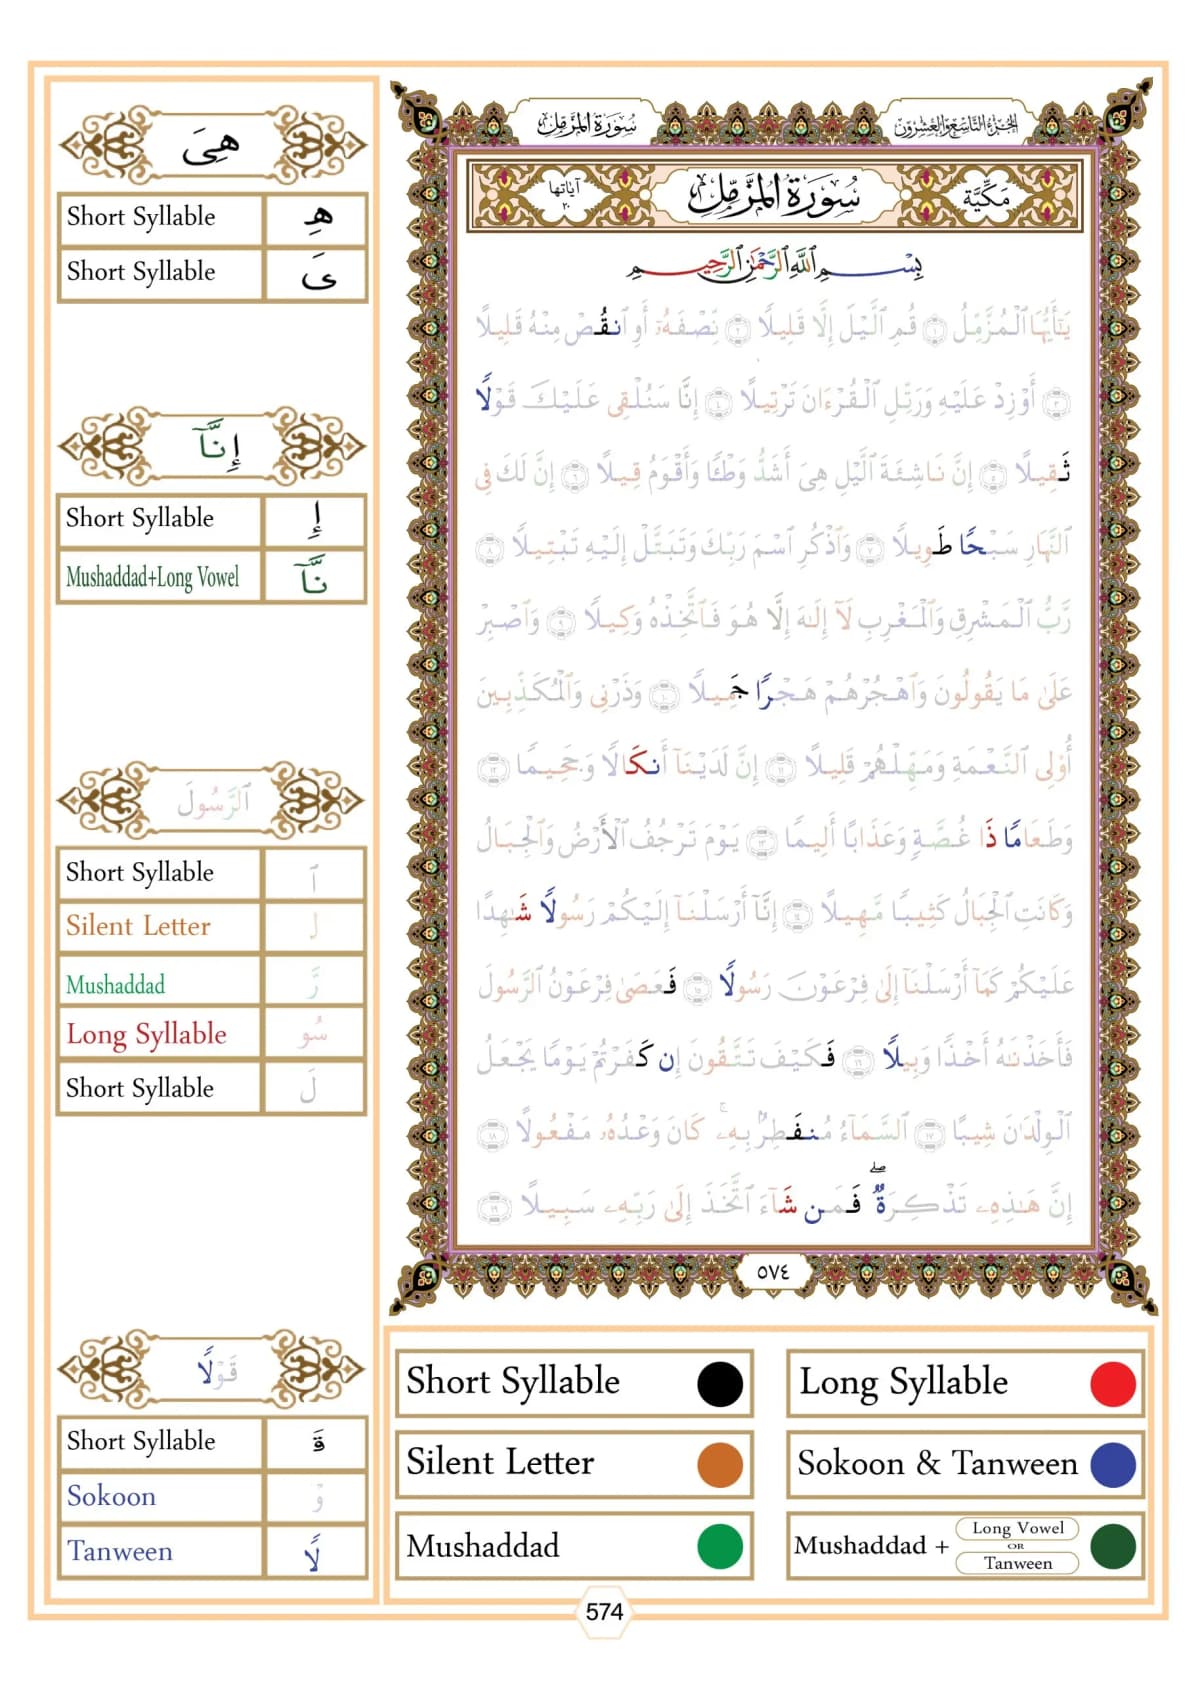 سُورَةُ المُزَّمِّل
الجُزْءُ التَّاسِعُ وَالعِشْرُونَ
مَكِّيَّة
سُورَةُ المُزَّمِّل
آيَاتُها
٢٠
بِسْمِ ٱللَّهِ ٱلرَّحْمَٰنِ ٱلرَّحِيمِ
يَٰٓأَيُّهَا ٱلْمُزَّمِّلُ ١ قُمِ ٱلَّيْلَ إِلَّا قَلِيلًا ٢ نِّصْفَهُۥٓ أَوِ ٱنقُصْ مِنْهُ قَلِيلًا
٣ أَوْ زِدْ عَلَيْهِ وَرَتِّلِ ٱلْقُرْءَانَ تَرْتِيلًا ٤ إِنَّا سَنُلْقِى عَلَيْكَ قَوْلًا
ثَقِيلًا ٥ إِنَّ نَاشِئَةَ ٱلَّيْلِ هِىَ أَشَدُّ وَطْـًٔا وَأَقْوَمُ قِيلًا ٦ إِنَّ لَكَ فِى
ٱلنَّهَارِ سَبْحًا طَوِيلًا ٧ وَٱذْكُرِ ٱسْمَ رَبِّكَ وَتَبَتَّلْ إِلَيْهِ تَبْتِيلًا ٨
رَّبُّ ٱلْمَشْرِقِ وَٱلْمَغْرِبِ لَآ إِلَٰهَ إِلَّا هُوَ فَٱتَّخِذْهُ وَكِيلًا ٩ وَٱصْبِرْ
عَلَىٰ مَا يَقُولُونَ وَٱهْجُرْهُمْ هَجْرًا جَمِيلًا ١٠ وَذَرْنِى وَٱلْمُكَذِّبِينَ
أُو۟لِى ٱلنَّعْمَةِ وَمَهِّلْهُمْ قَلِيلًا ١١ إِنَّ لَدَيْنَآ أَنكَالًا وَجَحِيمًا ١٢
وَطَعَامًا ذَا غُصَّةٍ وَعَذَابًا أَلِيمًا ١٣ يَوْمَ تَرْجُفُ ٱلْأَرْضُ وَٱلْجِبَالُ
وَكَانَتِ ٱلْجِبَالُ كَثِيبًا مَّهِيلًا ١٤ إِنَّآ أَرْسَلْنَآ إِلَيْكُمْ رَسُولًا شَٰهِدًا
عَلَيْكُمْ كَمَآ أَرْسَلْنَآ إِلَىٰ فِرْعَوْنَ رَسُولًا ١٥ فَعَصَىٰ فِرْعَوْنُ ٱلرَّسُولَ
فَأَخَذْنَٰهُ أَخْذًا وَبِيلًا ١٦ فَكَيْفَ تَتَّقُونَ إِن كَفَرْتُمْ يَوْمًا يَجْعَلُ
ٱلْوِلْدَٰنَ شِيبًا ١٧ ٱلسَّمَآءُ مُنفَطِرٌۢ بِهِۦ ۚ كَانَ وَعْدُهُۥ مَفْعُولًا ١٨
إِنَّ هَٰذِهِۦ تَذْكِرَةٌ ۖ فَمَن شَآءَ ٱتَّخَذَ إِلَىٰ رَبِّهِۦ سَبِيلًا ١٩
٥٧٤
هِىَ
Short Syllable هِ
Short Syllable ىَ
إِنَّآ
Short Syllable إِ
Mushaddad+Long Vowel نَّآ
ٱلرَّسُولَ
Short Syllable ٱ
Silent Letter ل
Mushaddad رَّ
Long Syllable سُو
Short Syllable لَ
قَوْلًا
Short Syllable قَ
Sokoon وْ
Tanween لًا
Short Syllable
Long Syllable
Silent Letter
Sokoon & Tanween
Mushaddad
Mushaddad + Long Vowel OR Tanween
574